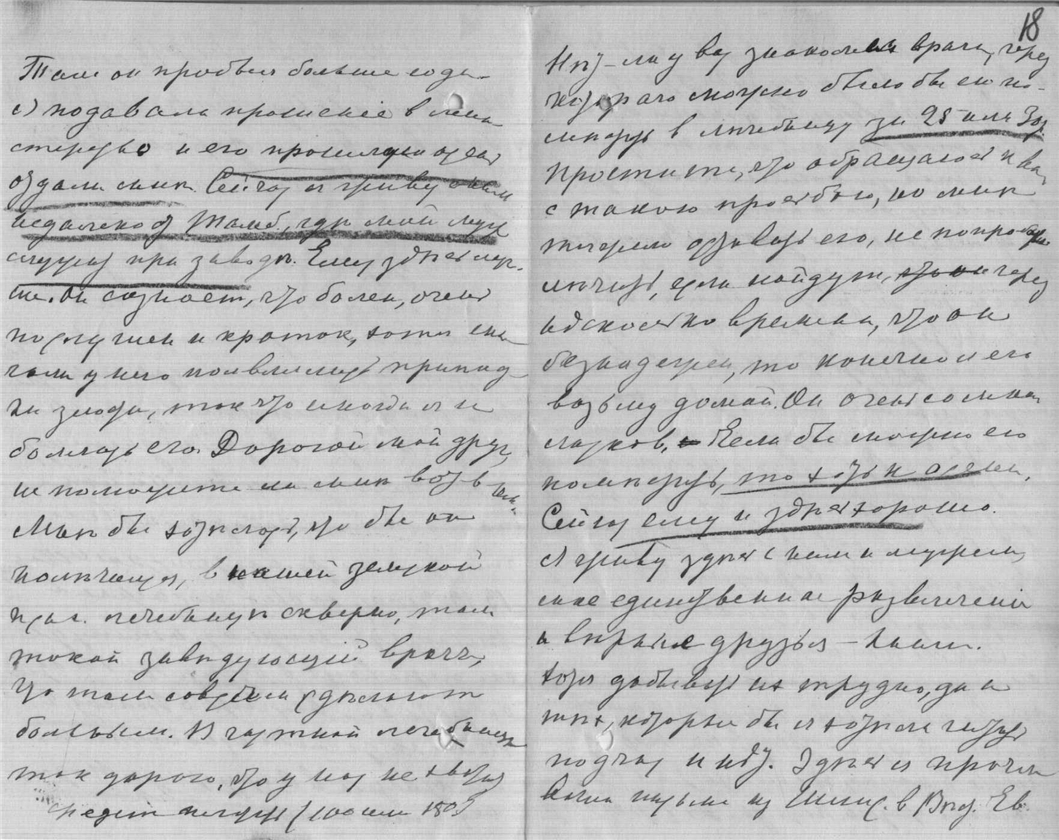 18
Там он пробыл больше года.
Я подавала прошение в мини
стерство и его прошлую осень
отдали мне. Сейчас я живу с ним
недалеко от Тамб., где мой муж
служит при заводе. Ему здесь луч-
ше. Он сознает, что болен, очень
послушен и кроток, хотя вна
чале у него появлялись припад
ки злобы, так что иногда я и
боялась его. Дорогой мой друг,
не поможете ли мне
Мне бы хотелось, что бы он
полечился, в нашей земской
лечебнице скверно, там
такой заведующий врач,
что там совсем
больным. В частной лечебнице
так дорого, что у нас не хватит
средств 100 или 150
Нет-ли у вас знакомого врача, через
которого можно было бы его по-
местить в лечебницу за 25 или 30 р.
Простите, что обращаюсь к вам
с такою просьбою, но мне
тяжело отдавать его, не попробовав
лечить, если найдут, что он через
несколько времени, что он
безнадежен, то конечно я его
возьму домой. Он очень со мной
ласков. Если бы можно его
поместить, то хоть к осени.
Сейчас ему и здесь хорошо.
Я живу здесь с ним и мужем,
мое единственное развлечение
и верные друзья – книги.
Хотя добывать их трудно, да и
тех, которые бы я хотела читать
подчас и нет. Здесь я прочла
ваши письма из Шлис. в Вест. Ев.